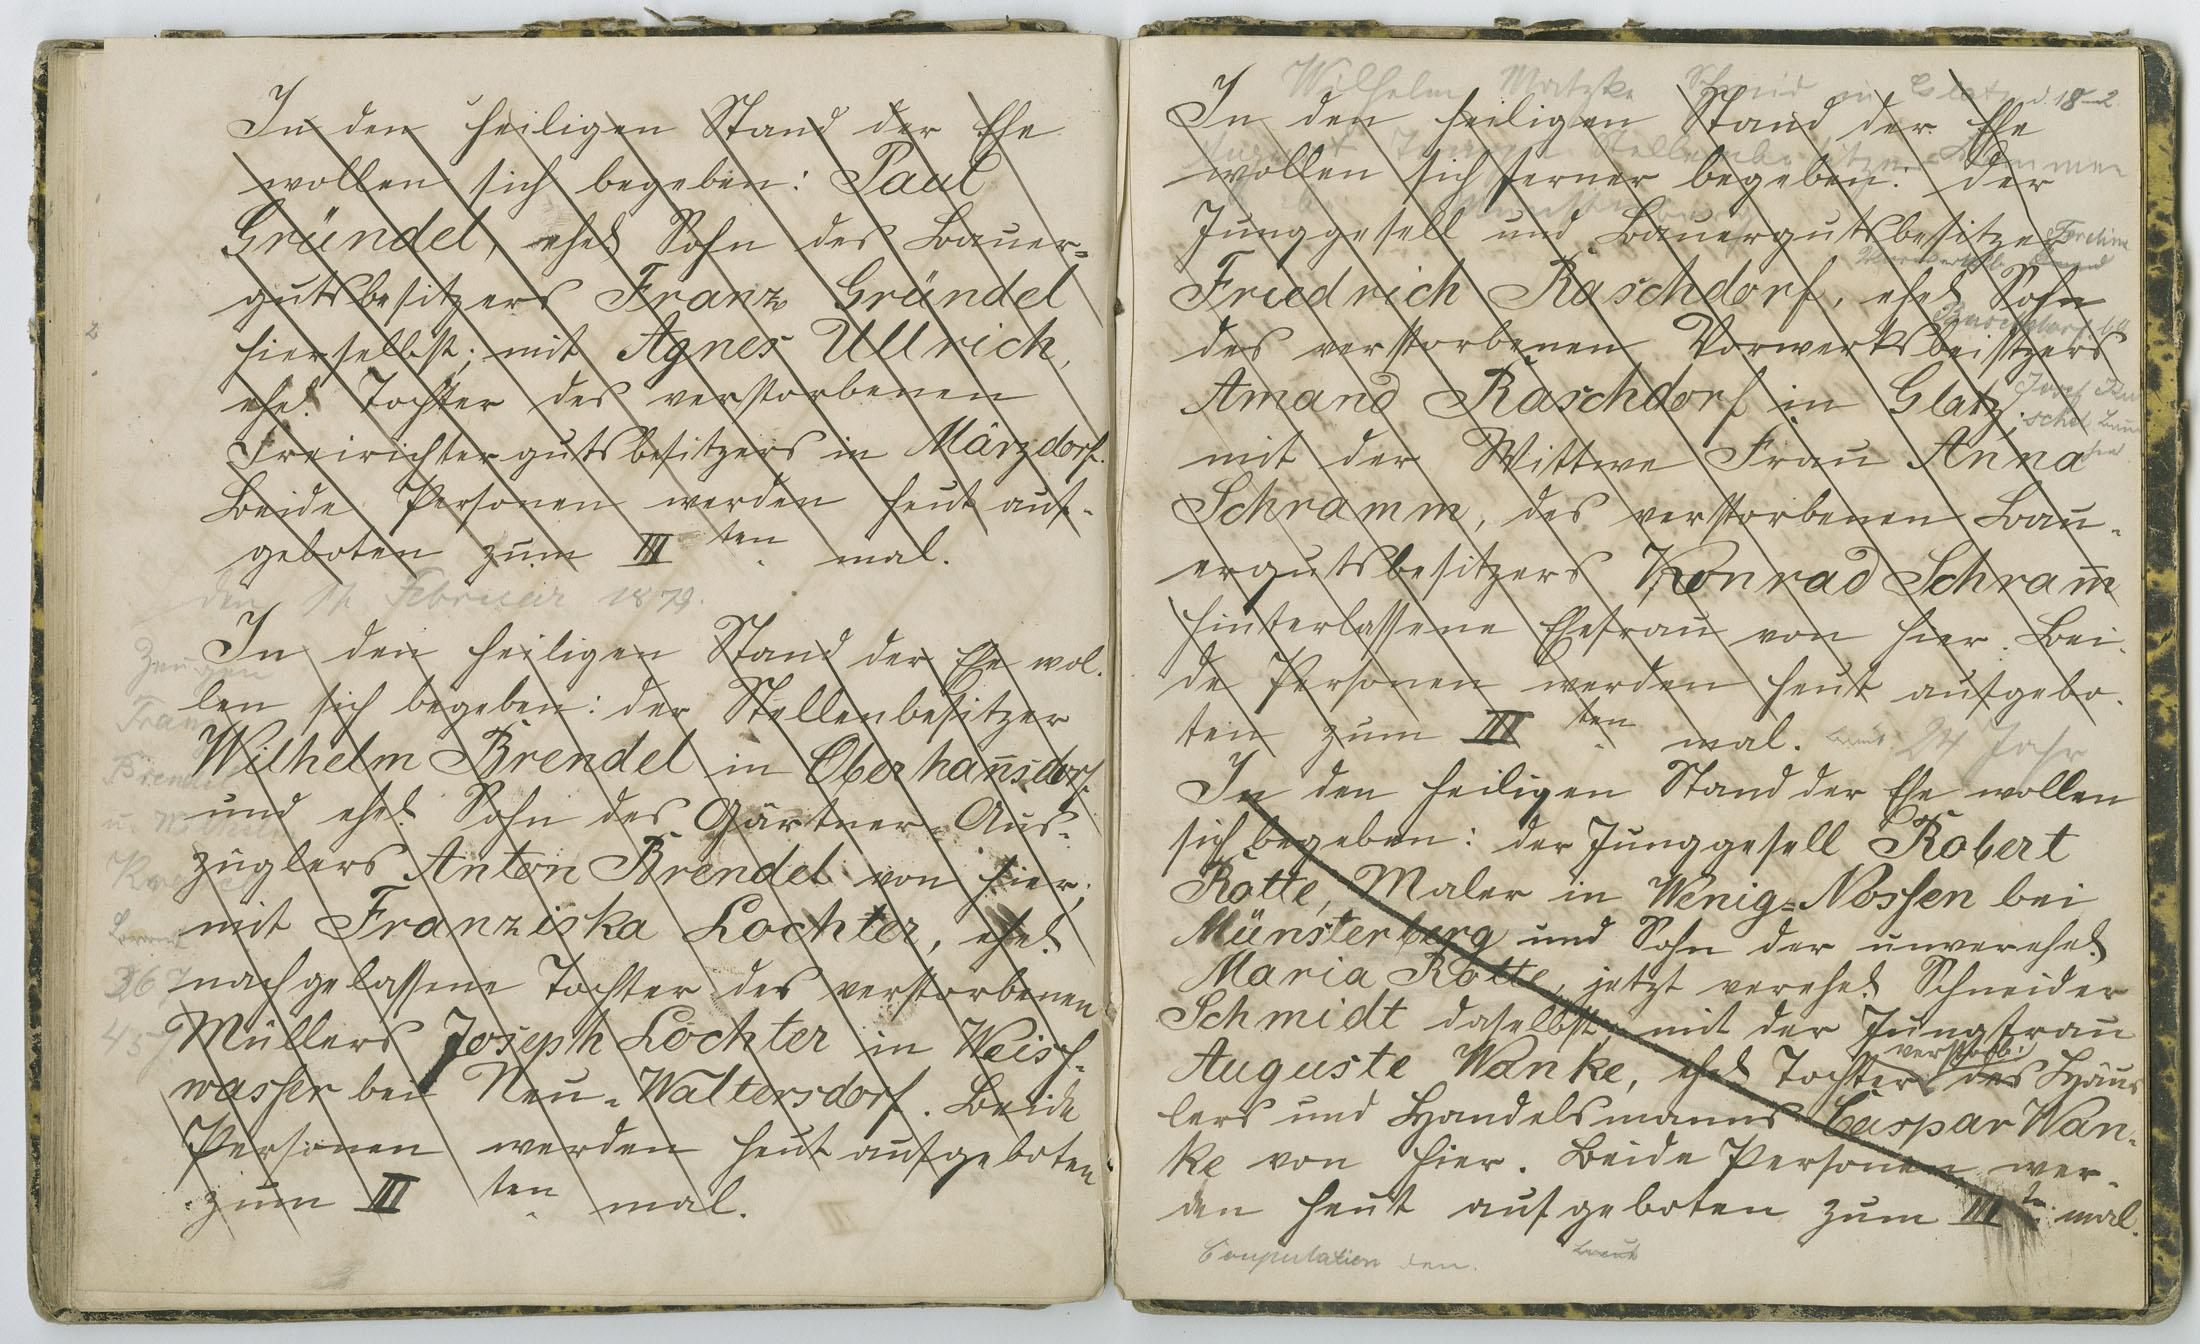 In den heiligen Stand der Ehe
wollen sich begeben: Paul
Gründel, ehel. Sohn des Bauer-
gutsbesitzers Franz Gründel
hierselbst; mit Agnes Ullrich,
ehel. Tochter des verstorbenen
Freirichtergutsbesitzers in Märzdorf.
Beide Personen werden heut auf-
geboten zum III ten. mal.
den 11. Februar 1879.
In den heiligen Stand der Ehe wol-
len sich begeben: der Stellenbesitzer
Wilhelm Brendel in Oberhan̄sdorf
und ehel. Sohn des Gärtner-Aus-
züglers Anton Brendel von hier;
mit Franziska Lochter, ehel.
nachgelassene Tochter des verstorbenen
Müllers Joseph Lochter in Weiss-
wasser bei Neu-Waltersdorf. Beide
Personen werden heut aufgeboten
zum III ten. mal.
Zeugen
Franz
Brendel
u. Wilhelm
367
457
Wilhelm Matzke Schmid in Glatz
In den heiligen Stand der Ehe
wollen sich ferner begeben: der
Junggesell und Bauergutsbesitzer
Friedrich Raschdorf, ehel. Sohn
des verstorbenen Vorwerksbesitzers
Amand Raschdorf in Glatz;
mit der Wittwe Frau Anna
Schramm, des verstorbenen Bau-
ergutsbesitzers Konrad Schram̄
hinterlassene Ehefrau von hier. Bei-
de Personen werden heut aufgebo-
ten zum III ten. mal.
Braut 24 Jahr
In den heiligen Stand der Ehe wollen
sich begeben: der Junggesell Robert
Rotte, Maler in Wenig-Nossen bei
Münsterberg und Sohn der unverehel.
Maria Rotte, jetzt verehel. Schneider
Schmidt daselbst; mit der Jungfrau
Auguste Wanke, ehel. Tochter des verstorb. Häus
lers und Handelsmanns Caspar Wan-
ke von hier. Beide Personen wer-
den heut aufgeboten zum III t. mal.
Coupulation den. Braut